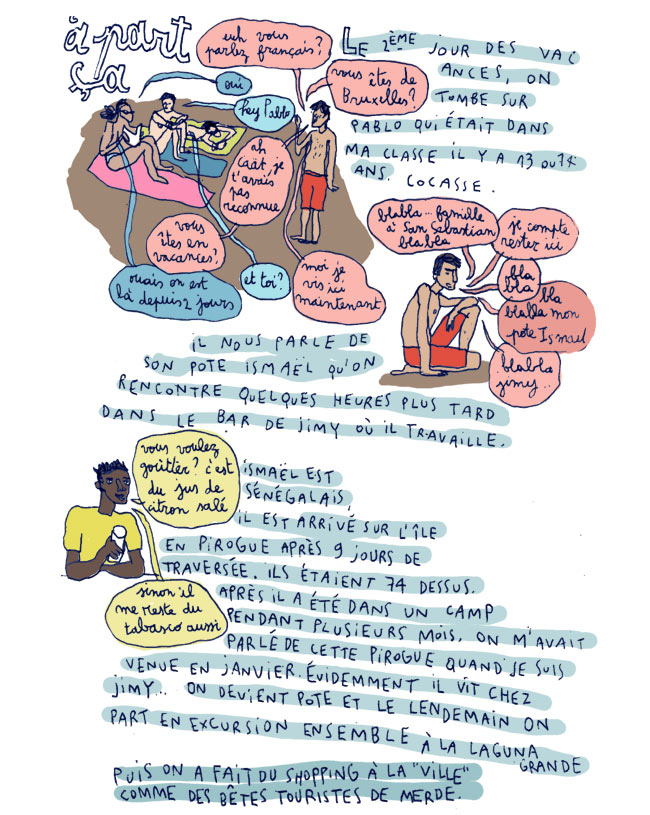 à part
ça
euh vous
parlez français?
vous êtes de
Bruxelles?
oui
hey Pablo
ah
Caät, je
t'avais
pas
reconnue
vous
êtes en
vacances?
ouais on est
là depuis 2 jours
et toi?
moi je
vis ici
maintenant
LE 2ÈME JOUR DES VAC
ANCES, ON
TOMBE SUR
PABLO QUI ÉTAIT DANS
MA CLASSE IL Y A 13 OU 14
ANS. COCASSE.
blabla... famille
à San Sebastian
blabla
je compte
rester ici
bla
bla
bla
blabla mon
pote Ismael
blabla
jimy...
IL NOUS PARLE DE
SON POTE ISMAËL QU'ON
RENCONTRE QUELQUES HEURES PLUS TARD
DANS LE BAR DE JIMY OÙ IL TRAVAILLE.
vous voulez
goûter? c'est
du jus de
citron salé
sinon il
me reste du
tabasco aussi
ISMAËL EST
SÉNÉGALAIS,
IL EST ARRIVÉ SUR L'ÎLE
EN PIROGUE APRÈS 9 JOURS DE
TRAVERSÉE. ILS ÉTAIENT 74 DESSUS.
APRÈS IL A ÉTÉ DANS UN CAMP
PENDANT PLUSIEURS MOIS. ON M'AVAIT
PARLÉ DE CETTE PIROGUE QUAND JE SUIS
VENUE EN JANVIER. ÉVIDEMMENT IL VIT CHEZ
JIMY... ON DEVIENT POTE ET LE LENDEMAIN ON
PART EN EXCURSION ENSEMBLE À LA LAGUNA
GRANDE
PUIS ON A FAIT DU SHOPPING À LA "VILLE"
COMME DES BÊTES TOURISTES DE MERDE.